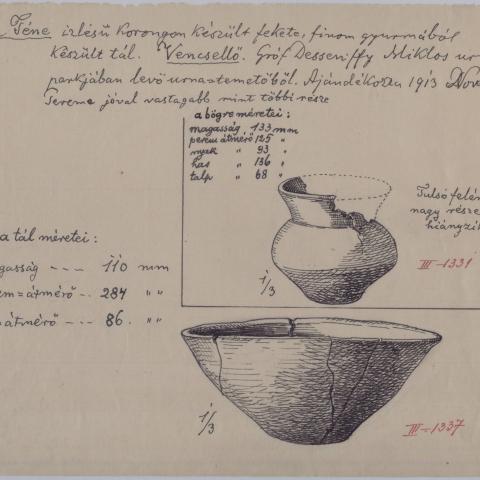 Téne izlésű korongon készült fekete, finom gyurmából
készült tál. Vencsellő. Gróf Dessewffy Miklos ur
parkjában levő urnatemetőből. Ajándékozta 1913 Nov
Pereme jóval vastagabb mint többi része
a bögre méretei:
magasság 133 mm
perem átmérő 125 "
nyak " 93 "
has " 136 "
talp " 68 "
Tulsó felén
nagy része
hiányzik
III-1331
1/3
a tál méretei:
gasság --- 110 mm
em=átmérő -- 284 " "
átmérő --- 86. " "
1/3
III-1337